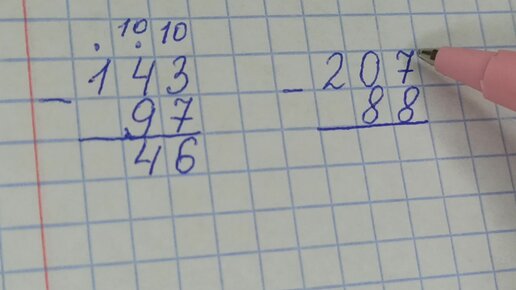 10 10
143
- 97
46
207
- 88